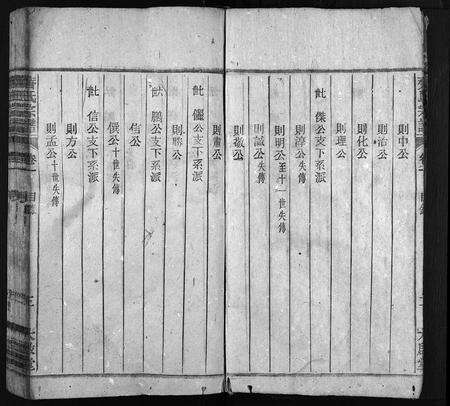 則中公
則治公
則化公
則理公
世傑公支下系派
則淳公十世失傳
則明公至十一世失傳
則誠公失傳
則敬公
則肅公
世儼公支下系派
則勝公
世鵬公支下系派
信公
儀公十世失傳
世信公支下系派
則方公
則孟公十世失傳
卷一
目錄